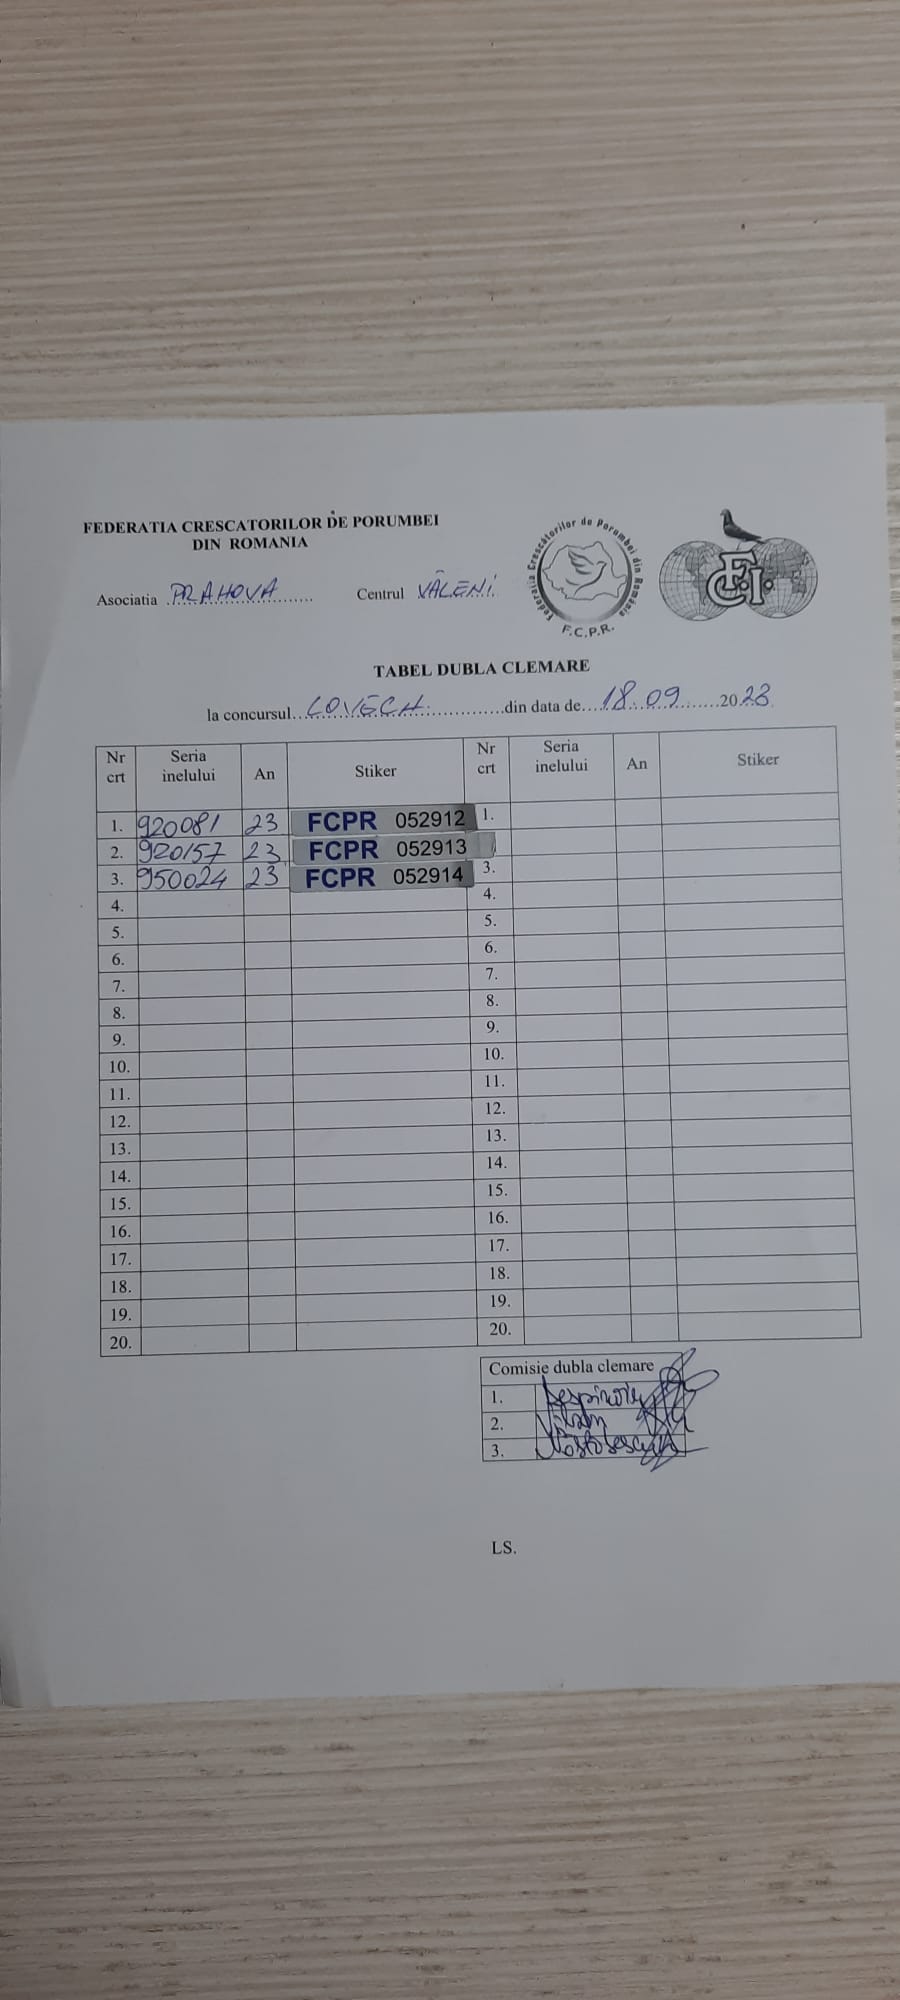 FEDERATIA CRESCATORILOR DE PORUMBEI
DIN ROMANIA
Federatia Crescătorilor de Porumbei din România
F.C.P.R.
FCI
Asociatia PRAHOVA Centrul VĂLENI
TABEL DUBLA CLEMARE
la concursul LOVECH din data de 18.09 2023
Nr crt Seria inelului An Stiker Nr crt Seria inelului An Stiker
1. 920081 23 FCPR 052912 1.
2. 920157 23 FCPR 052913
3. 950024 23 FCPR 052914 3.
4. 4.
5. 5.
6. 6.
7. 7.
8. 8.
9. 9.
10. 10.
11. 11.
12. 12.
13. 13.
14. 14.
15. 15.
16. 16.
17. 17.
18. 18.
19. 19.
20. 20.
Comisie dubla clemare
1.
2.
3.
LS.